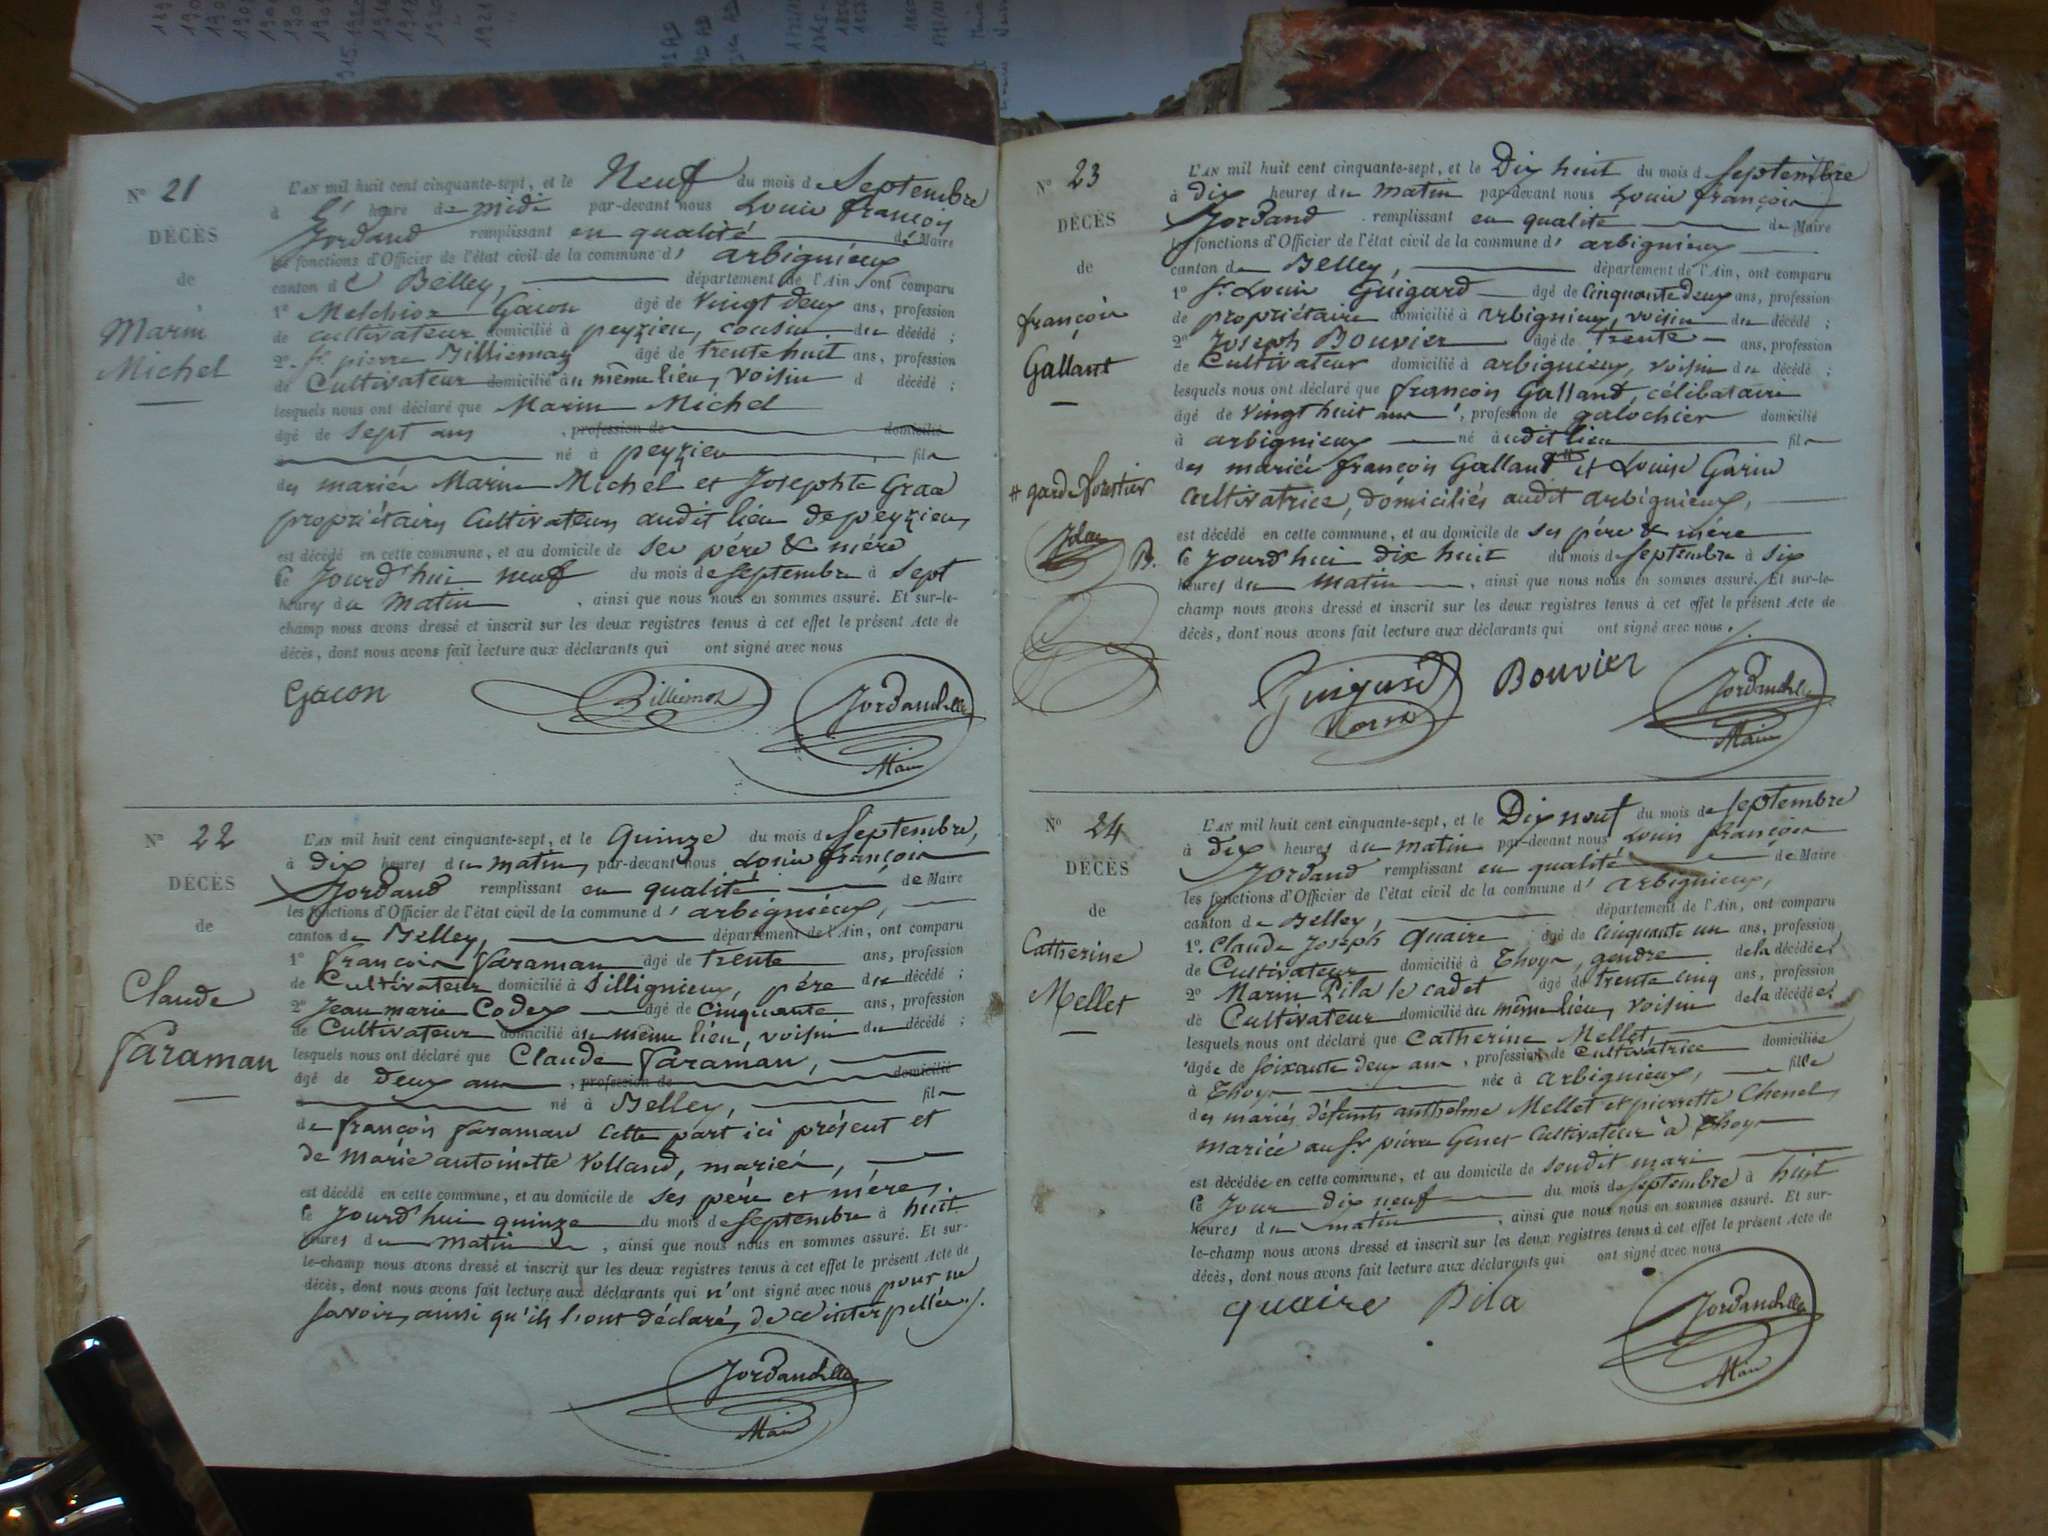 N° 21
DÉCÈS
de
Marin
Michel
L'AN mil huit cent cinquante-sept, et le Neuf du mois de Septembre
à heure de midi par-devant nous Louis françois
Jordand remplissant en qualité de Maire
les fonctions d'Officier de l'état civil de la commune d' arbignieux
canton de Belley, département de l'Ain, ont comparu
1° Melchior Gacon âgé de vingt deux ans, profession
de cultivateur domicilié à peyzieu, cousin du décédé ;
2° Sr pierre Billiemaz âgé de trente huit ans, profession
de Cultivateur domicilié au même lieu, voisin d décédé ;
lesquels nous ont déclaré que Marin Michel
âgé de sept ans , profession de domicilié
à né à peyzieu fils
des mariés Marin Michel et Josephte
propriétaires Cultivateurs audit lieu de peyzieu,
est décédé en cette commune, et au domicile de ses père & mère
le Jourd'hui neuf du mois de septembre à sept
heures du Matin , ainsi que nous nous en sommes assuré. Et sur-le-
champ nous avons dressé et inscrit sur les deux registres tenus à cet effet le présent Acte de
décès, dont nous avons fait lecture aux déclarants qui ont signé avec nous
Gacon Billiemaz Jordand
Maire
N° 22
DÉCÈS
de
Claude
Faraman
L'AN mil huit cent cinquante-sept, et le Quinze du mois de Septembre,
à Dix heures du matin, par-devant nous Louis françois
Jordand remplissant en qualité de Maire
les fonctions d'Officier de l'état civil de la commune d' arbignieux,
canton de Belley, département de l'Ain, ont comparu
1° françois Faraman âgé de trente ans, profession
de Cultivateur domicilié à Sillignieux, père du décédé ;
2° Jean marie Codex âgé de Cinquante ans, profession
de Cultivateur domicilié au même lieu, voisin du décédé ;
lesquels nous ont déclaré que Claude Faraman,
âgé de deux ans , profession de domicilié
à né à Belley, fils
de françois Faraman cette part ici présent et
de Marie antoinette Volland, mariés,
est décédé en cette commune, et au domicile de ses père et mère,
le Jourd'hui quinze du mois de septembre à huit
heures du matin , ainsi que nous nous en sommes assuré. Et sur-
le-champ nous avons dressé et inscrit sur les deux registres tenus à cet effet le présent Acte de
décès, dont nous avons fait lecture aux déclarants qui n'ont signé avec nous pour ne
savoir, ainsi qu'ils l'ont déclaré, de ce interpellés.
Jordand
Maire
N° 23
DÉCÈS
de
françois
Gallant
# garde forestier
L'AN mil huit cent cinquante-sept, et le Dix huit du mois de Septembre
à dix heures du matin par-devant nous Louis françois
Jordand remplissant en qualité de Maire
les fonctions d'Officier de l'état civil de la commune d' arbignieux
canton de Belley, département de l'Ain, ont comparu
1° Sr Louis Guigard âgé de Cinquante deux ans, profession
de propriétaire domicilié à arbignieux, voisin du décédé ;
2° Joseph Bouvier âgé de trente ans, profession
de Cultivateur domicilié à arbignieux, voisin du décédé ;
lesquels nous ont déclaré que françois Galland, célibataire
âgé de vingt huit ans , profession de galochier domicilié
à arbignieux né audit lieu fils
des mariés françois Galland # et Louise Garin
cultivatrice, domiciliés audit arbignieux,
est décédé en cette commune, et au domicile de ses père & mère
le Jourd'hui dix huit du mois de septembre à six
heures du matin , ainsi que nous nous en sommes assuré. Et sur-le-
champ nous avons dressé et inscrit sur les deux registres tenus à cet effet le présent Acte de
décès, dont nous avons fait lecture aux déclarants qui ont signé avec nous.
Guigard Bouvier Jordand
Maire
N° 24
DÉCÈS
de
Catherine
Mellet
L'AN mil huit cent cinquante-sept, et le Dix neuf du mois de Septembre
à dix heures du matin par-devant nous Louis françois
Jordand remplissant en qualité de Maire
les fonctions d'Officier de l'état civil de la commune d' arbignieux,
canton de Belley, département de l'Ain, ont comparu
1°. Claude Joseph Quaire âgé de Cinquante un ans, profession
de Cultivateur domicilié à Thoys, gendre de la décédée ;
2° Marin Pila le cadet âgé de trente cinq ans, profession
de Cultivateur domicilié au même lieu, voisin de la décédée ;
lesquels nous ont déclaré que Catherine Mellet,
âgée de soixante deux ans , profession de Cultivatrice domiciliée
à Thoys née à arbignieux, fille
des mariés défunts anthelme Mellet et pierrette Chenel,
mariée au Sr pierre Genet Cultivateur à Thoys
est décédée en cette commune, et au domicile de sondit mari
le Jour dix neuf du mois de septembre à huit
heures du matin , ainsi que nous nous en sommes assuré. Et sur-
le-champ nous avons dressé et inscrit sur les deux registres tenus à cet effet le présent Acte de
décès, dont nous avons fait lecture aux déclarants qui ont signé avec nous
quaire Pila Jordand
Maire